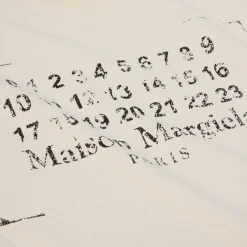 1 2 3 4 5 6 7 8 9
10 12 13 14 15 16
17 18 19 20 21 22 23
Maison Margiela
PARIS